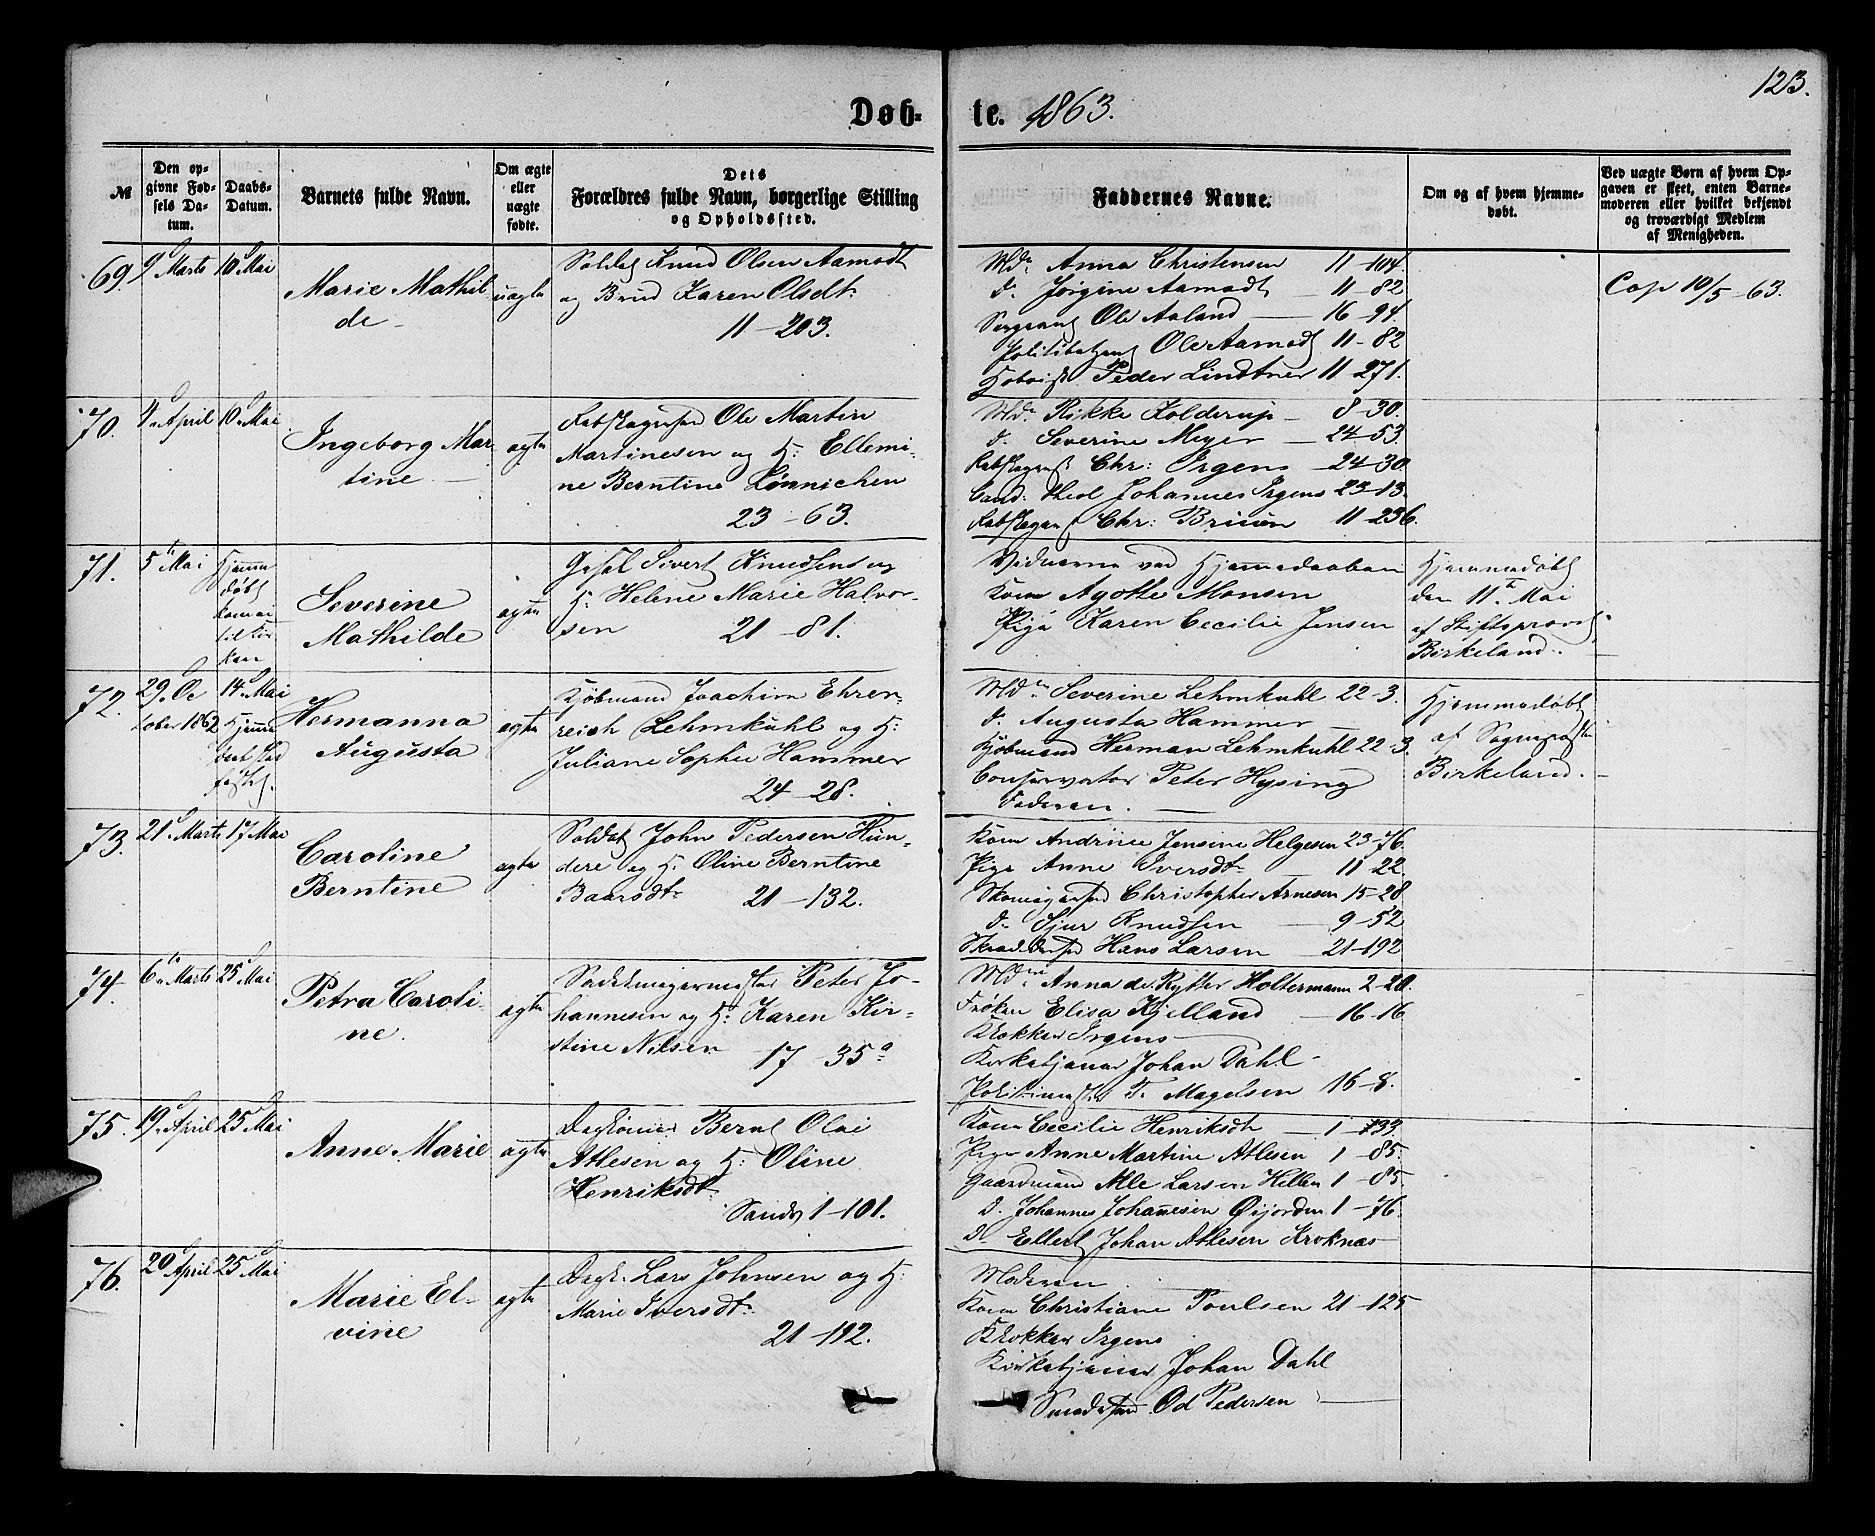 123.
Døb- te. 1863.
№
Den opgivne Fødsels Datum.
Daabs-Datum.
Barnets fulde Navn.
Om ægte eller uægte fødte.
Dets Forældres fulde Navn, borgerlige Stilling og Opholdssted.
Faddernes Navne.
Om og af hvem hjemmedøbt.
Ved uægte Børn af hvem Opgaven er skeet, enten Barnemoderen eller hvilket bekjendt og troværdigt Medlem af Menigheden.
69. 9 Marts 10 Mai
Marie Mathil-
de
uagte
Soldat Knud Olsen Aamodt
og Brud Karen Olsdt.
11-203.
Md. Anna Christensen 11-104.
d. Jørgine Aamodt 11-82
Sergeant Ole Aaland 16-94.
Politibetjent Ole Aamodt 11-82
Peder Lindtner 11-271.
Cop 10/5-63.
70. 4 April 10 Mai
Ingeborg Mar-
tine
agte
Ole Martin
Martinesen og H: Ellemi-
ne Berntine Lønnichen
23-63.
Md. Rikke Kolderup 8-30.
d. Severine Meyer 24-53
Chr: Irgens 24-30.
Cand: theol Johannes Irgens 23-13.
Chr: Bruun 11-236.
71. 5 Mai
Hjemme
døbt
til Kir
ken
Severine
Mathilde
agte
Sivert Knudsen og
H: Helene Marie Halvor-
sen 21-81.
Vidnerne ved Hjemmedaaben
Kone Agathe Monsen
Pige Karen Cecilie Jensen
Hjemmedøbt
den 11 Mai
af Stiftsprovst
Birkeland.
72. 29 Oc
tober 1862
14 Mai
Hjemme
Hermanna
Augusta
agte
Kjøbmand Joachim Ehren-
reich Lehmkuhl og H:
Juliane Sophie Hammer
24-28.
Md. Severine Lehmkuhl 22-3.
d. Augusta Hammer
Kjøbmand Herman Lehmkuhl 22-3.
Conservator Peter Hysing
Faderen.
Hjemmedøbt
af Sognepræsten
Birkeland.
73. 21 Marts 17 Mai
Caroline
Berntine
agte
Soldat John Pedersen Hun-
dere og H. Oline Berntine
Baarsdt. 21-132.
Kone Andrine Jensine Helgesen 23-76.
Pige Anne Iversdt. 11-22.
Christopher Arnesen 15-28
d. Sjur Knudsen 9-52
Hans Larsen 21-192
74. 6 Marts 25 Mai
Petra Caroli-
ne.
agte
Sadelmagermester Peter Jo-
hannesen og H: Karen Kir-
stine Nilsen 17-35a
Md. Anna de Rytter Holtermann 2-20.
Frøken Elisa Kjelland 16-16
Klokker Irgens
Kirketjener Johan Dahl
Politimester T. Magelsen 16-8.
75. 19 April 25 Mai
Anne Marie
agte
Bernt Olai
Atlesen og H: Oline
Henriksdt.
1-101.
Kone Cecilie Henriksdt 1-133.
Pige Anne Martine Atlesen 1-85.
Gaardmand Atle Larsen Hellen 1-85.
d. Johannes Johannesen Øijorden 1-76.
d. Ellert Johan Atlesen Kroknæs
76. 20 April 25 Mai
Marie El-
vine
agte
Lars Johnsen og H:
Marie Iversdt.
21-192.
Moderen
Kone Christiane Poulsen 21-125
Klokker Irgens
Kirketjener Johan Dahl
Od Pedersen